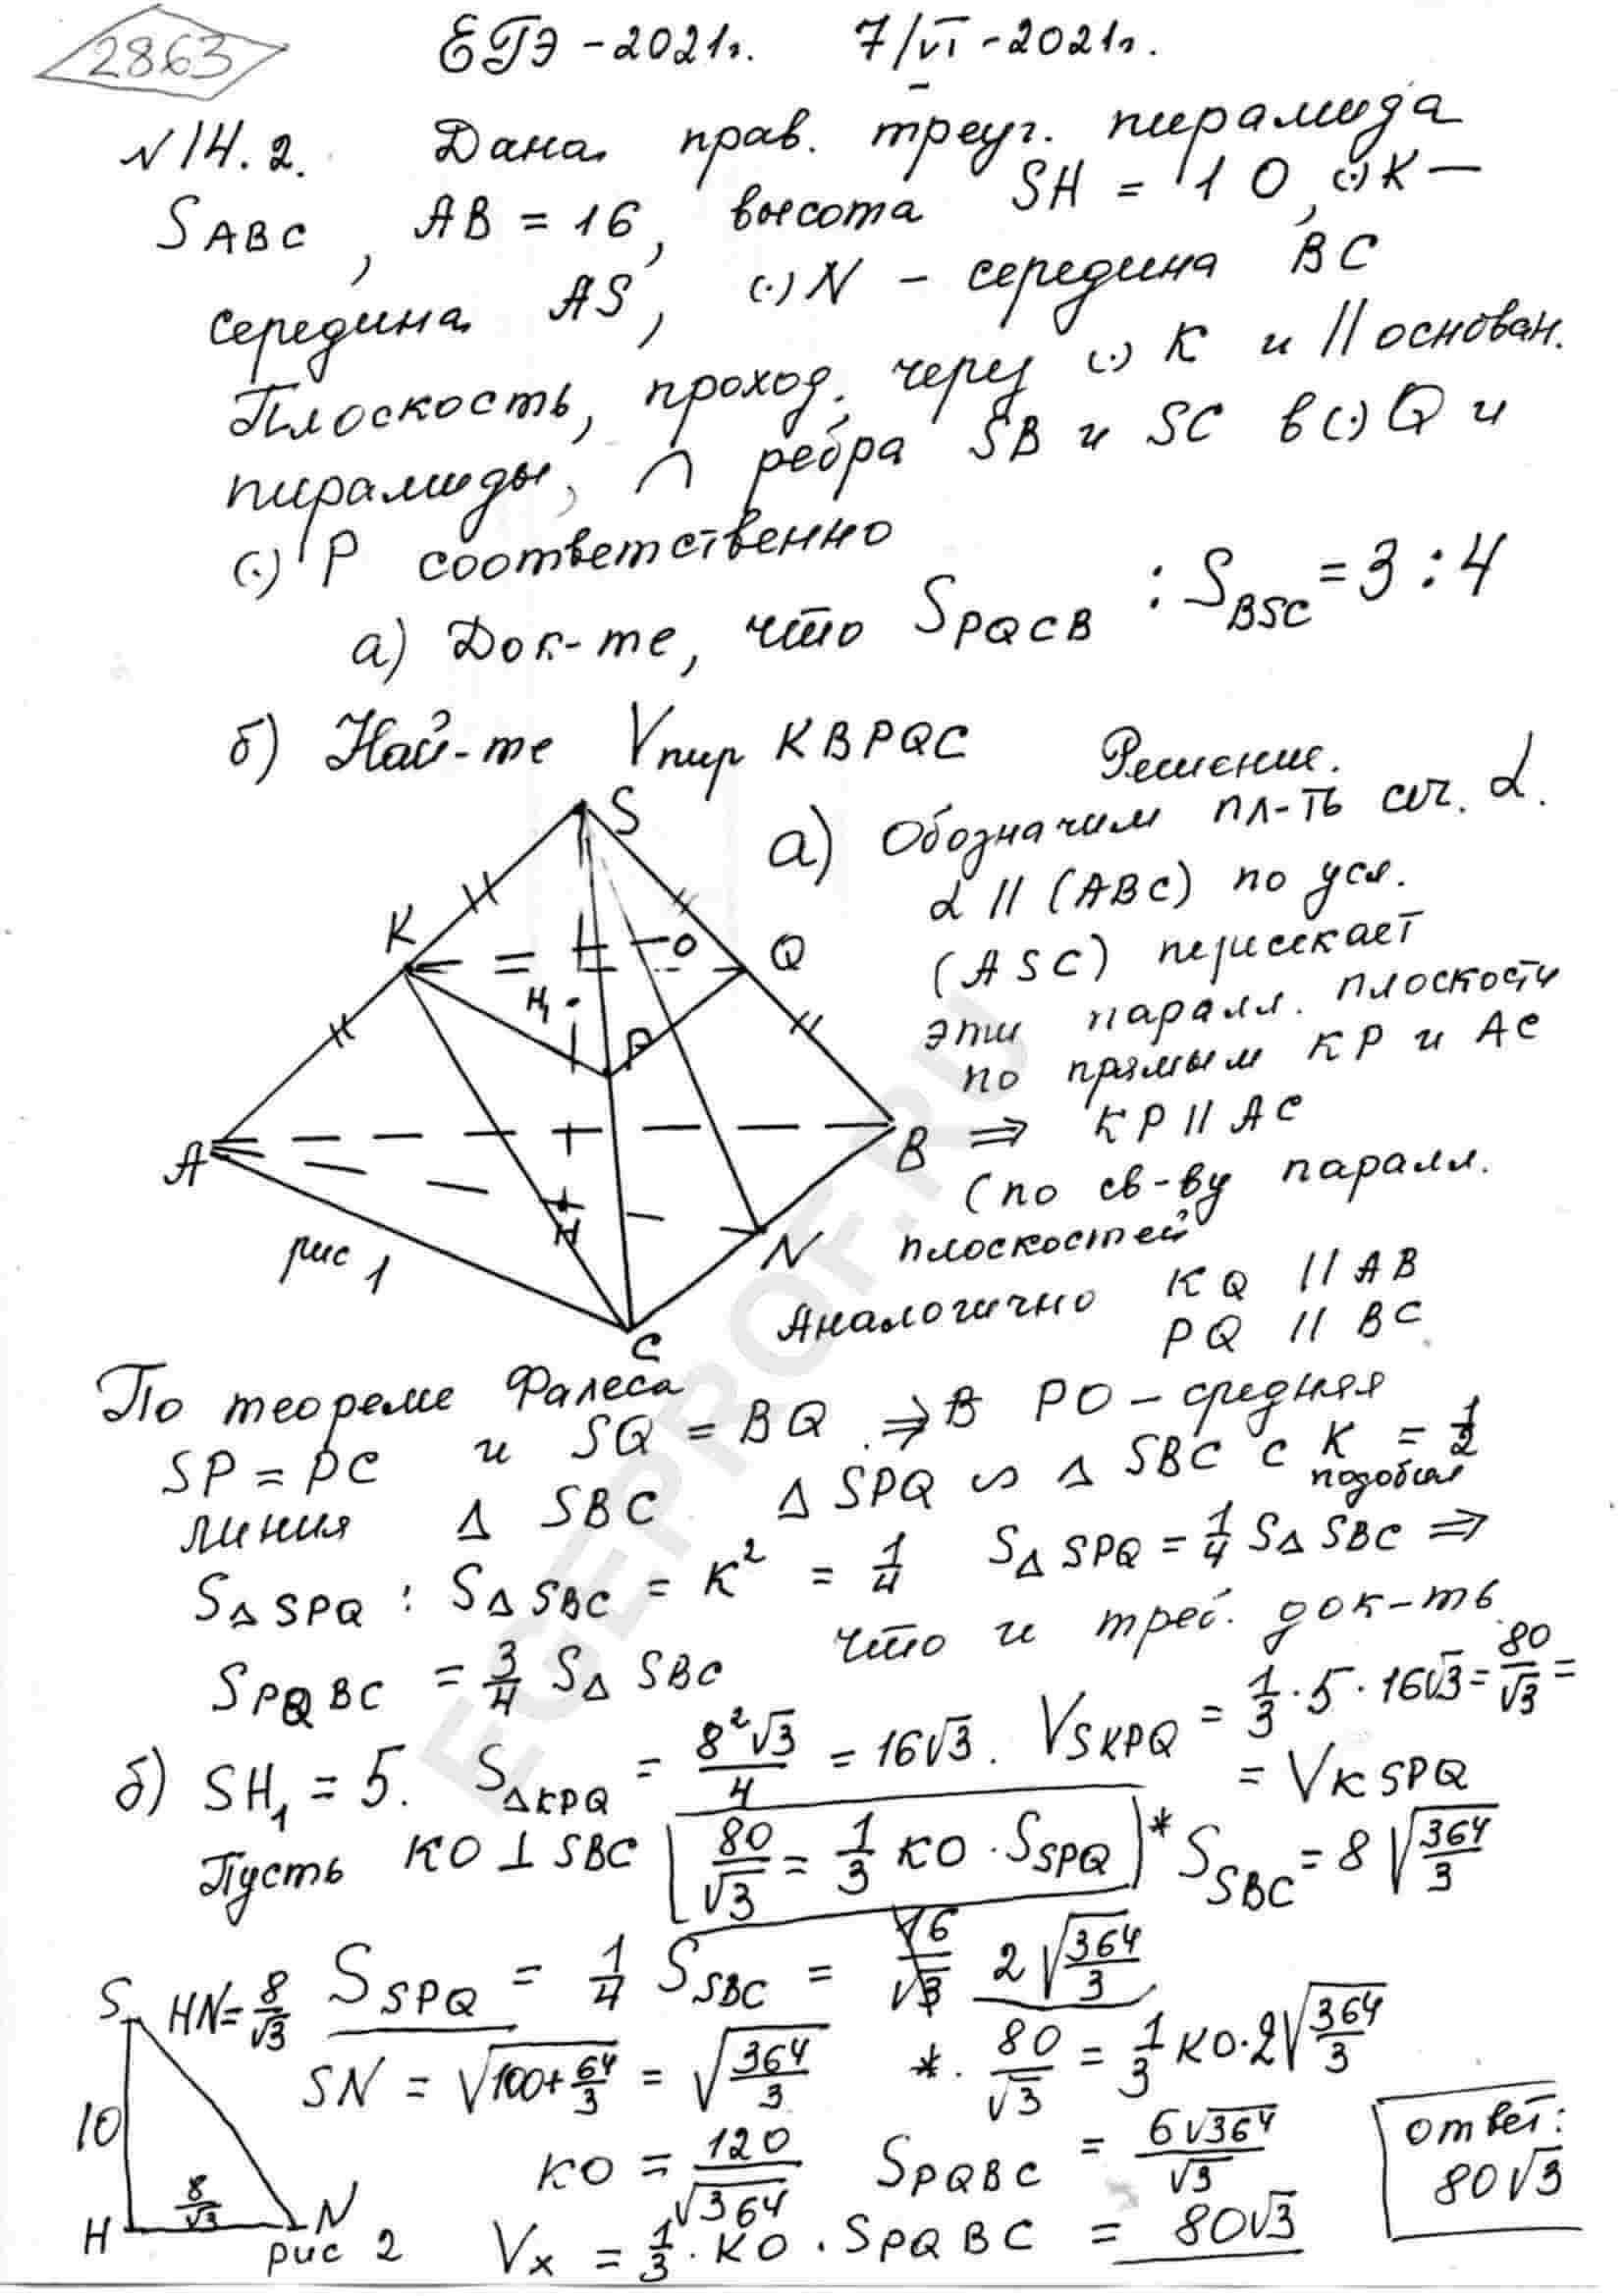 2863
ЕГЭ - 2021г. 7/VI - 2021г.
N 14.2. Дана прав. треуг. пирамида
SABC, AB = 16, высота SH = 10, (·)K —
середина AS, (·) N - середина BC
Плоскость, проход. через (·) K и || основан.
пирамиды, ∩ ребра SB и SC в (·) Q и
(·) P соответственно
а) Док-те, что S PQCB : S BSC = 3 : 4
б) Най-те V пир KBPQC
Решение.
а) Обозначим пл-ть сеч. α.
α || (ABC) по усл.
(ASC) пересекает
эти паралл. плоскости
по прямым KP и AC
⇒ KP || AC
(по св-ву паралл.
плоскостей
Аналогично KQ || AB
PQ || BC
S
K
O
Q
H₁
P
A
B
H
N
C
рис 1
По теореме Фалеса
SP = PC и SQ = BQ. ⇒ В PQ - средняя
линия Δ SBC. Δ SPQ ∽ Δ SBC с K = 1/2
подобия
SΔSPQ : SΔSBC = K² = 1/4 SΔSPQ = 1/4 SΔSBC ⇒
SPQBC = 3/4 SΔSBC что и треб. док-ть.
б) SH₁ = 5. SΔKPQ = 8²√3/4 = 16√3. VSKPQ = 1/3 · 5 · 16√3 = 80/√3 =
= VKSPQ
Пусть KO ⊥ SBC [80/√3 = 1/3 KO · SSPQ]* SSBC = 8√(364/3)
SSPQ = 1/4 SSBC = 16/√3 2√(364/3)
S
HN = 8/√3
SN = √(100+64/3) = √(364/3) *. 80/√3 = 1/3 KO · 2√(364/3)
10
8/√3
H
N
рис 2
KO = 120/√364 SPQBC = 6√364/√3
Vx = 1/3 · KO · SPQBC = 80√3
ответ:
80√3
EGEPROF.RU